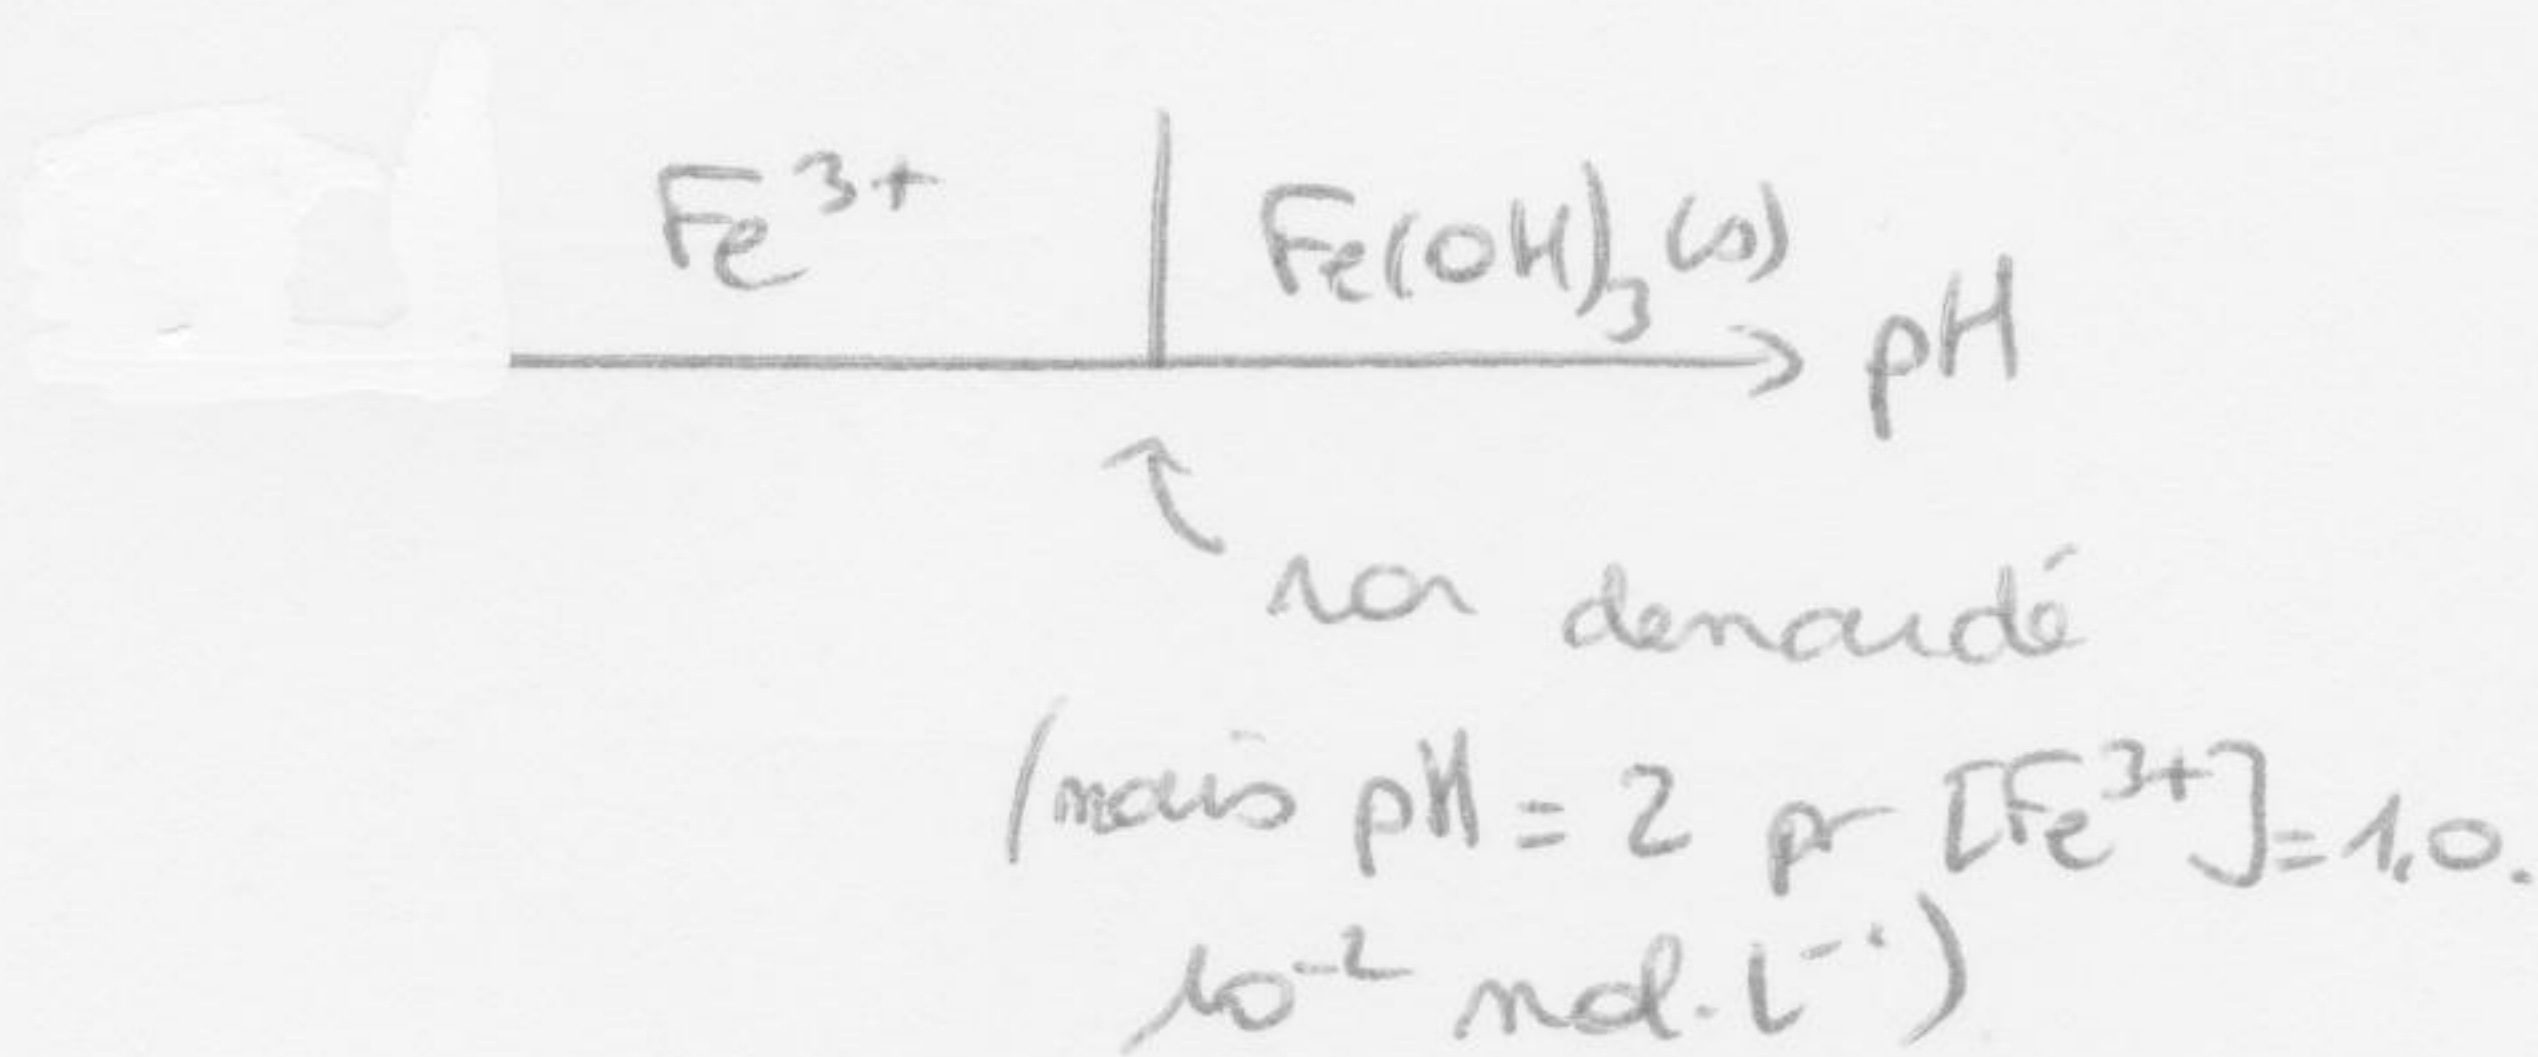 Fe³⁺ Fe(OH)₃ (s)
pH
non demandé
(mais pH = 2 pr [Fe³⁺] = 1,0.
10⁻² mol.L⁻¹)